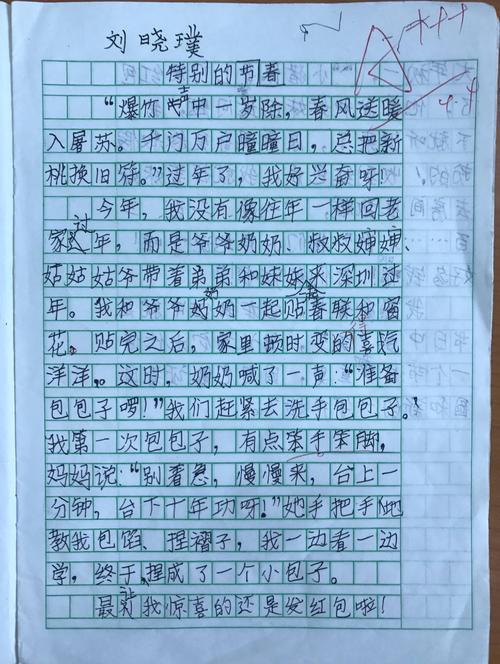 刘晓璞
特别的节春
“爆竹声中一岁除，春风送暖
入屠苏。千门万户曈曈日，总把新
桃换旧符。”过年了，我好兴奋呀！
今年，我没有像往年一样回老
家过年，而是爷爷奶奶、叔叔婶婶、
姑姑姑爷带着弟弟和妹妹来深圳过
年。我和爷爷奶奶一起贴春联和窗
花。贴完之后，家里顿时变得喜气
洋洋。这时，奶奶喊了一声：“准备
包包子啰！”我们赶紧去洗手包包子。
我第一次包包子，有点笨手笨脚，
妈妈说：“别着急，慢慢来，台上一
分钟，台下十年功呀！”她手把手地
教我包馅、捏褶子，我一边看一边
学，终于，捏成了一个小包子。
最让我惊喜的还是发红包啦！